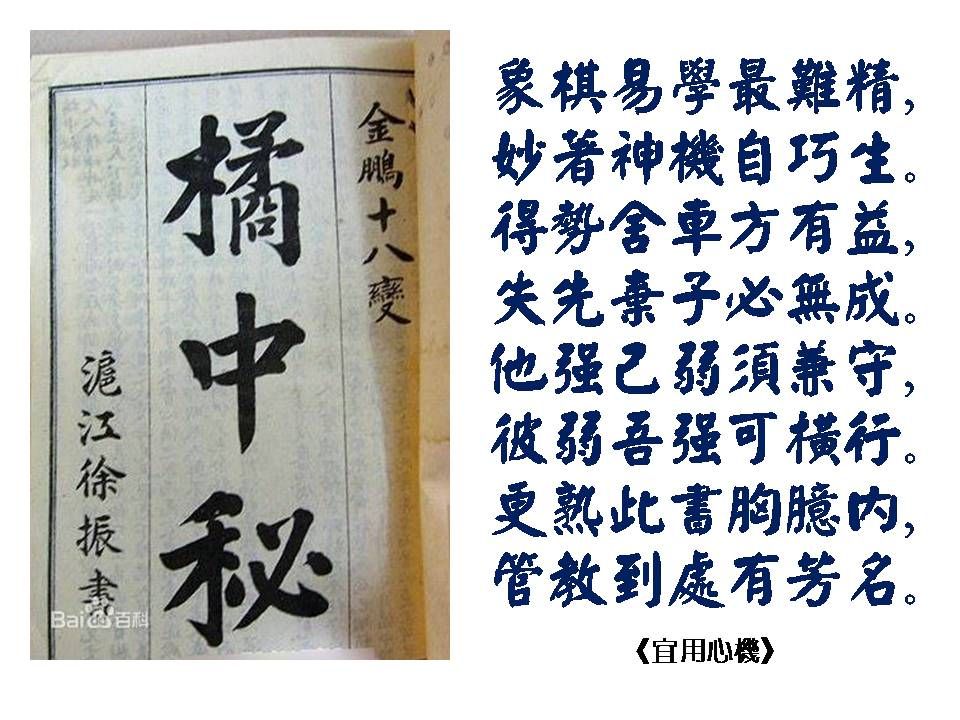 金鵬十八變
橘中秘
滬江徐振書
Bai百科
象棋易學最難精，
妙著神機自巧生。
得勢舍車方有益，
失先棄子必無成。
他强己弱須兼守，
彼弱吾强可橫行。
更熟此書胸臆内，
管教到處有芳名。
《宜用心機》